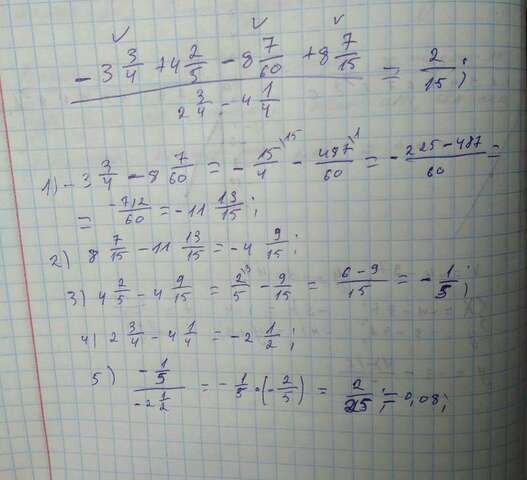 - 3 3/4 + 4 2/5 - 8 7/60 + 8 7/15
2 3/4 - 4 1/4 = 2/15;
1) - 3 3/4 - 8 7/60 = - 15/4 \15 - 487/60 \1 = - 225 - 487/60 =
= - 712/60 = - 11 13/15;
2) 8 7/15 - 11 13/15 = - 4 9/15;
3) 4 2/5 - 4 9/15 = 2/5 \3 - 9/15 = 6 - 9/15 = - 1/5;
4) 2 3/4 - 4 1/4 = - 2 1/2;
5) - 1/5 / - 2 1/2 = - 1/5 · (- 2/5) = 2/25; = 0,08;